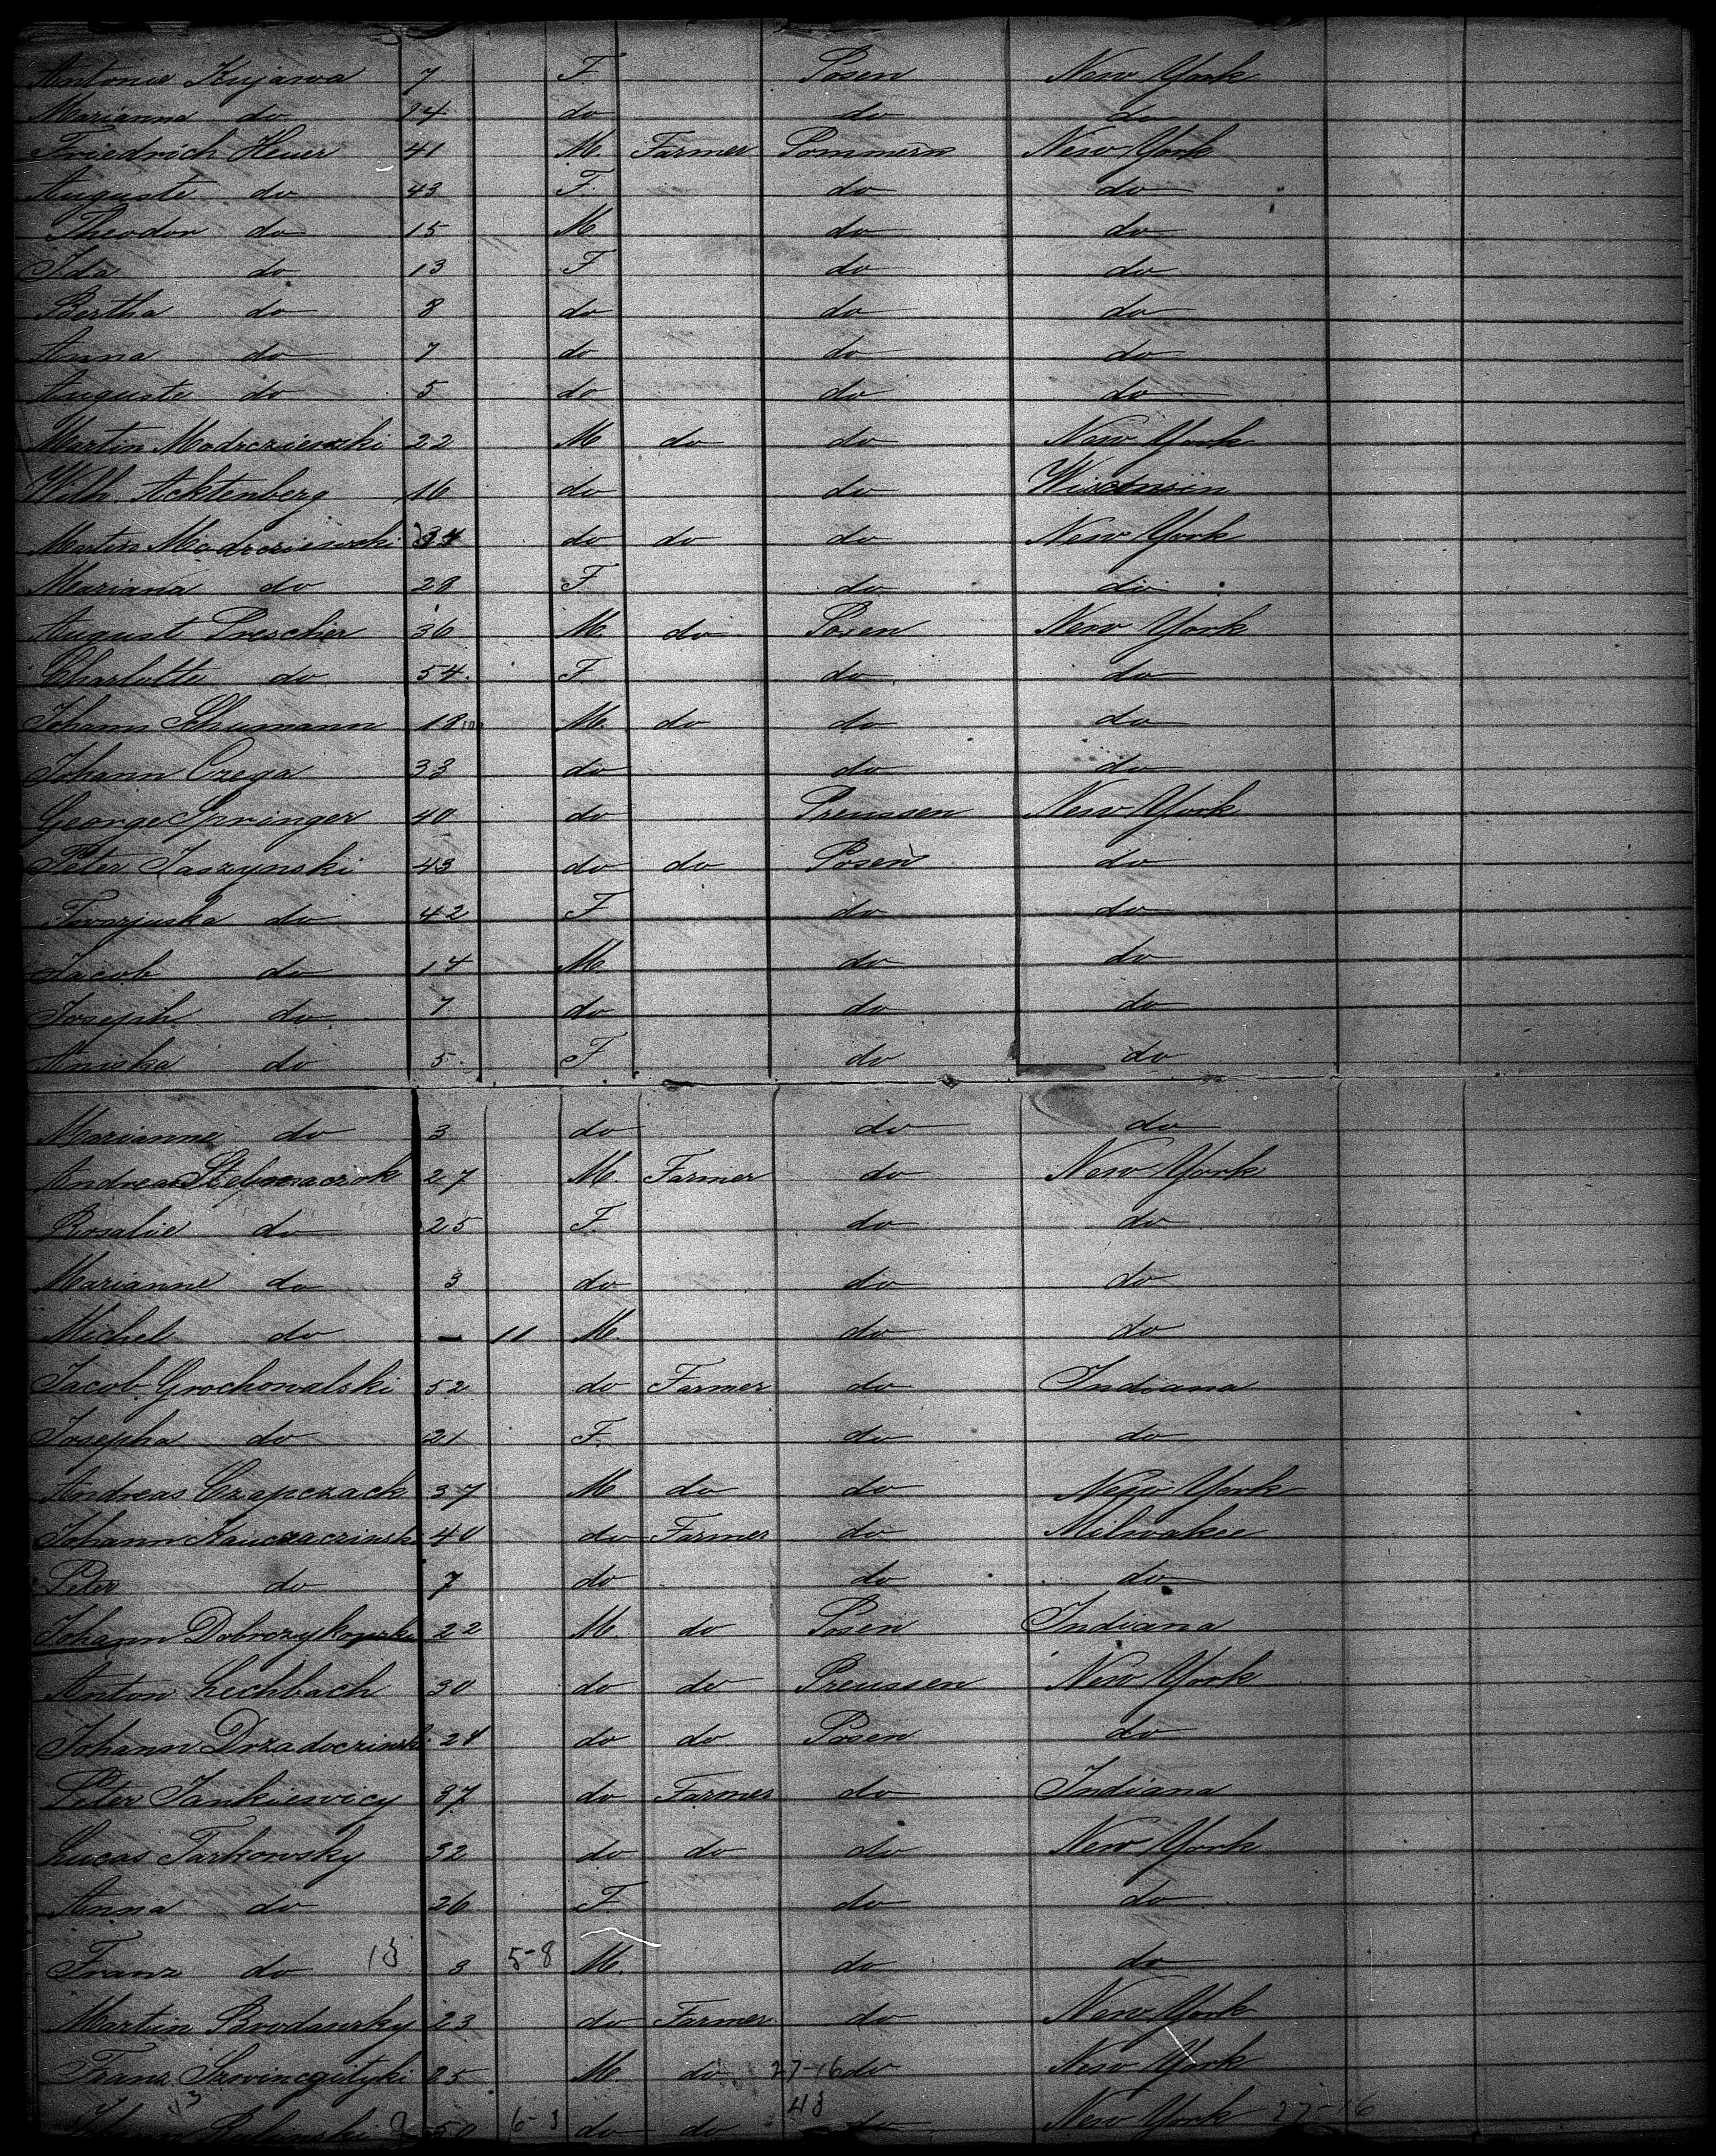 Antonie Kujawa 7 F Posen New York
Marianna do 14 do do do
Friedrich Heuer 41 M. Farmer Pommern New York
Auguste do 43 F. do do
Theodor do 15 M do do
Ida do 13 F do do
Bertha do 8 do do do
Anna do 7 do do do
Auguste do 5 do do do
Martin Modrcziewski 22 M do do New York
Wilh. Acktenberg 16 do do Wisconsin
Martin Modrcziewski 34 do do do New York
Mariana do 28 F do do
August Prescher 36 M. do Posen New York
Charlotte do 54. F do do
Johann Schumann 18 M. do do do
Johann Czega 33 do do do
George Springer 40 do Preussen New York
Peter Jaszynski 43 do do Posen do
do 42 F do do
Jacob do 14 M do do
Joseph do 7 do do do
Aniska do 5 F do do
Marianne do 3 do do do
Andreas 27 M. Farmer do New York
Rosalie do 25 F. do do
Marianne do 3 do do do
Michel do - 11 M. do do
Jacob Grochowalski 52 do Farmer do Indiana
Josepha do 21 F. do do
Andreas Czapczack 37 M do do New York
Johann 40 do Farmer do Milwakie
Peter do 7 do do do
Johann Dobrzykowski 22 M. do Posen Indiana
Anton Lechbach 30 do do Preussen New York
Johann 24 do do Posen do
Peter Jankiewicy 37 do Farmer do Indiana
Lucas Tarkowsky 32 do do do New York
Anna do 26 F. do do
Franz do 13 3 5-8 M. do do
Martin Brodawsky 23 do Farmer do New York
Franz 25 M. do 27-16 do New York
Johann Rubinski 50 6-3 do do 43 do New York 27-16